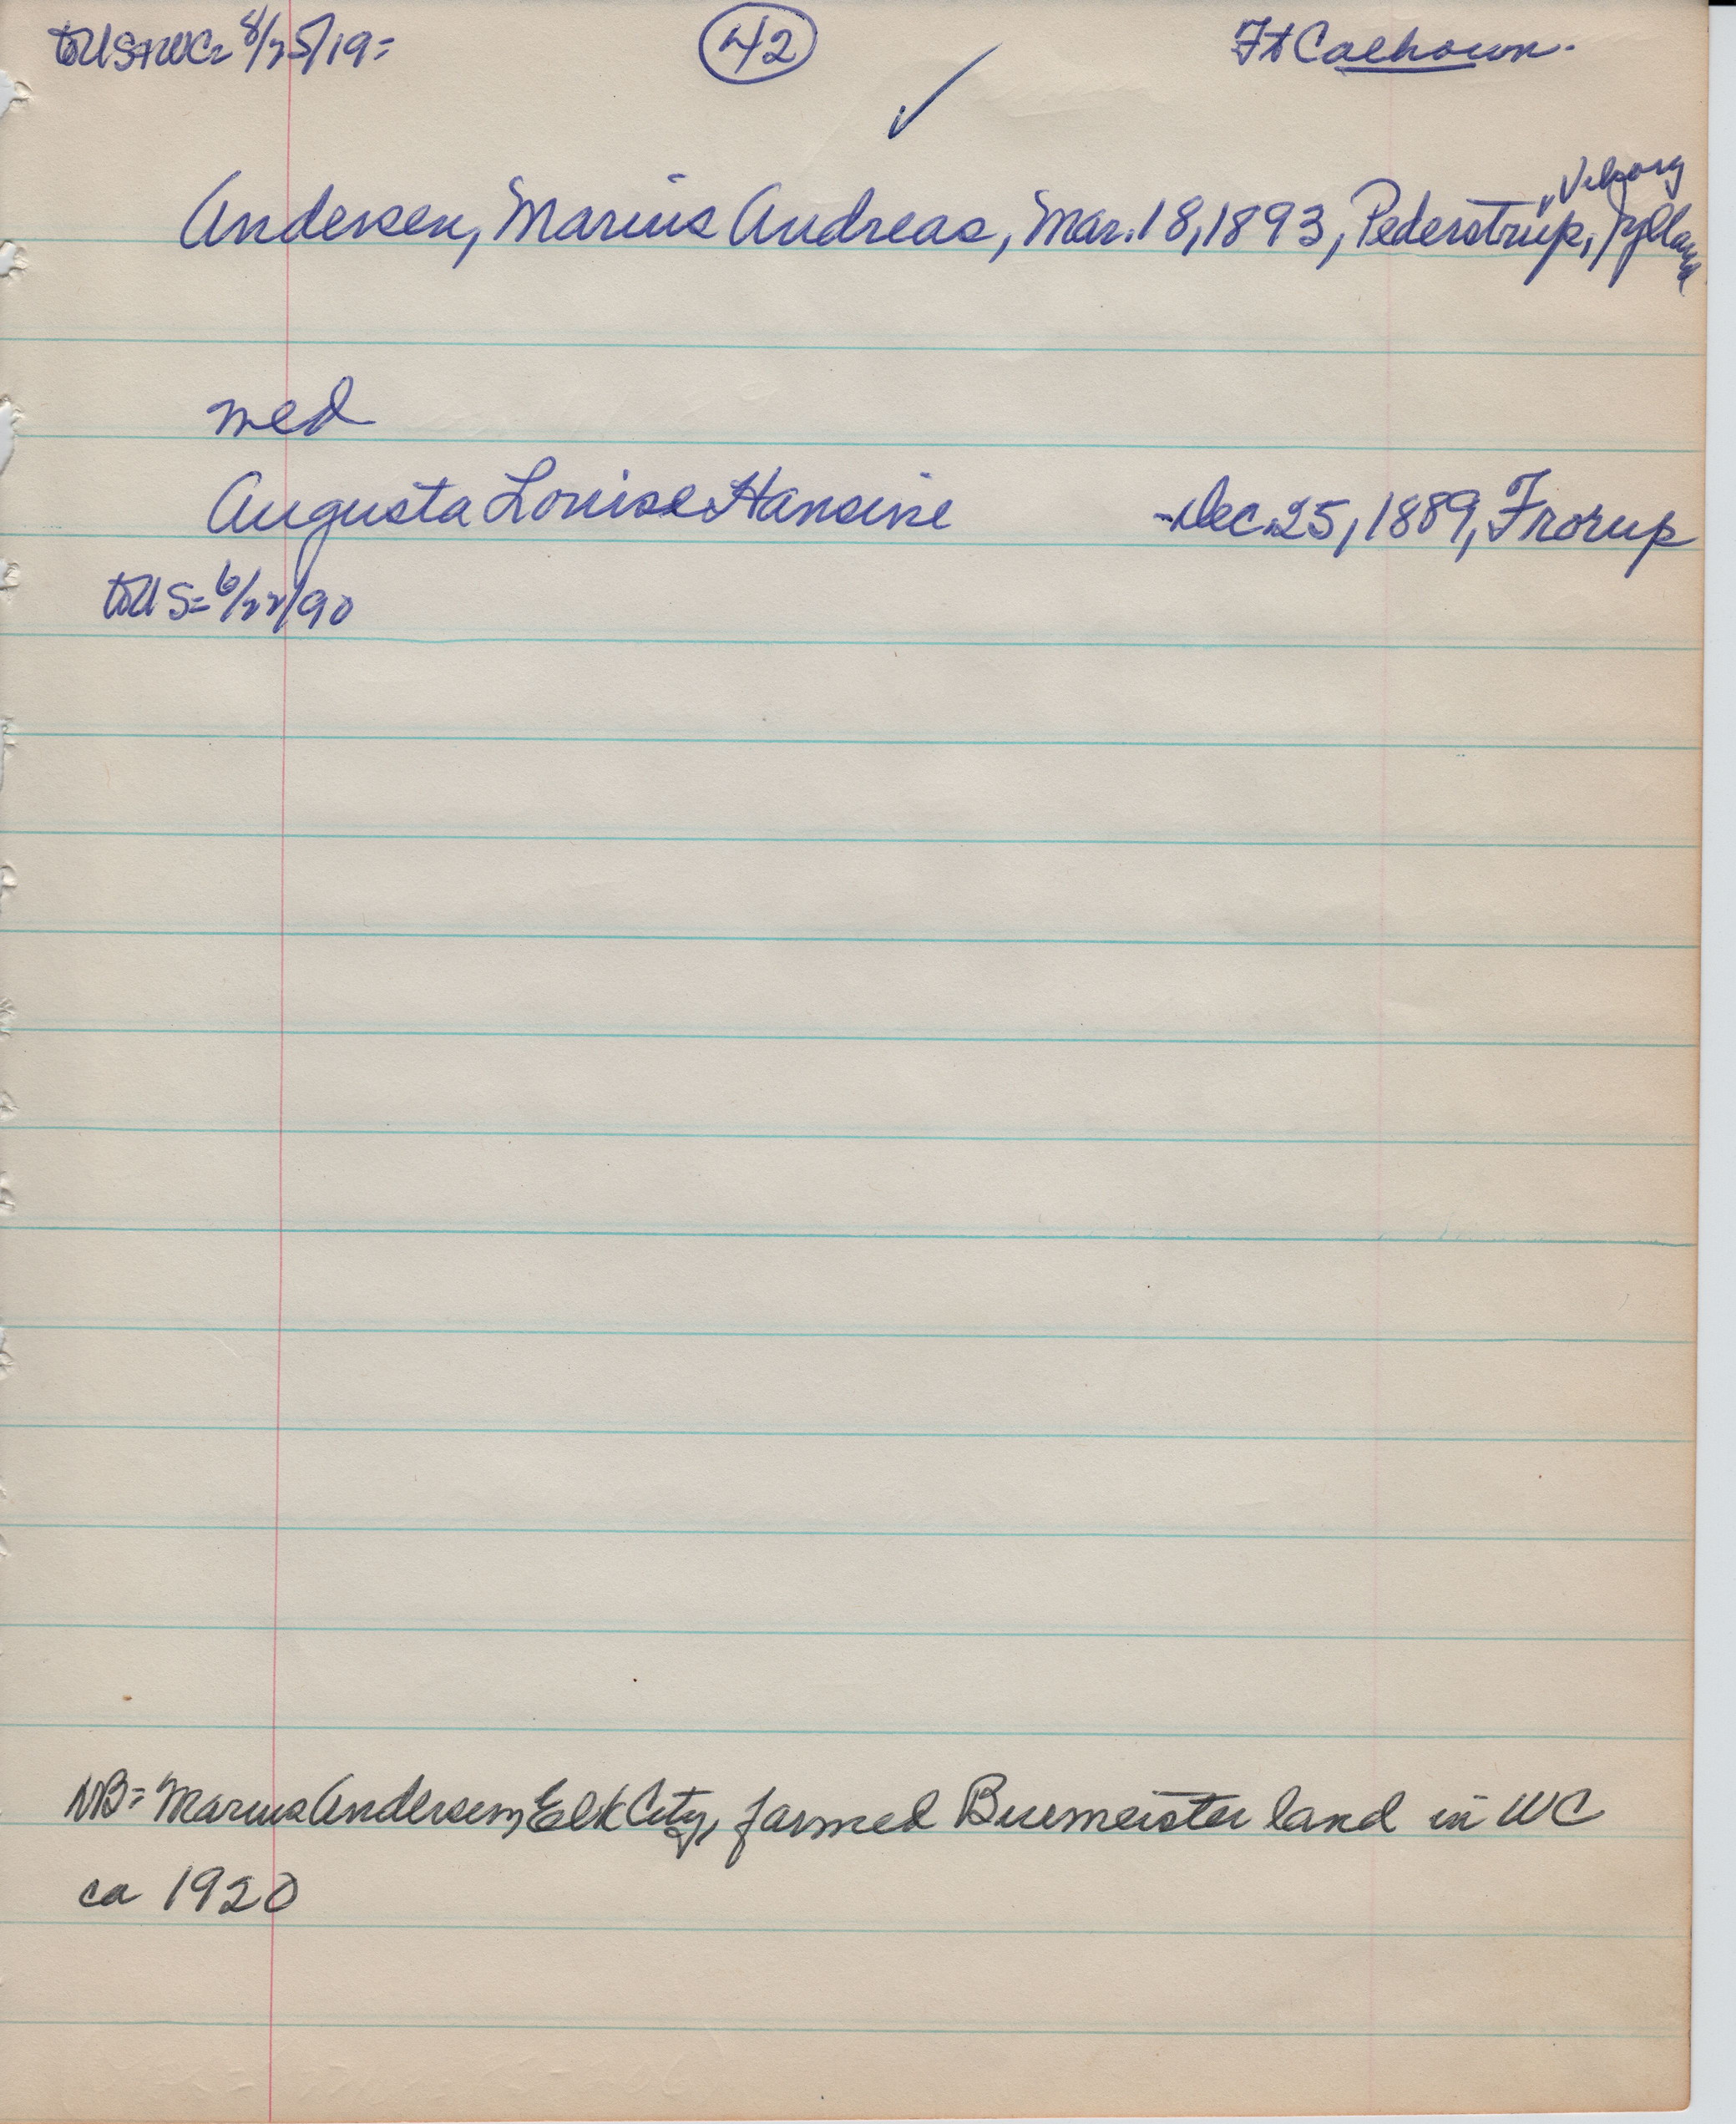 to US+WC= 8/25/19=
42
Ft Calhoun.
✓
Andersen, Marius Andreas, Mar. 18, 1893, Pederstrup, Viborg, Jylland
med
Augusta Louise Hansine - Dec. 25, 1889, Frorup
to US= 6/22/90
NB= Marius Andersen, Elk City, farmed Buemeister land in WC
ca 1920